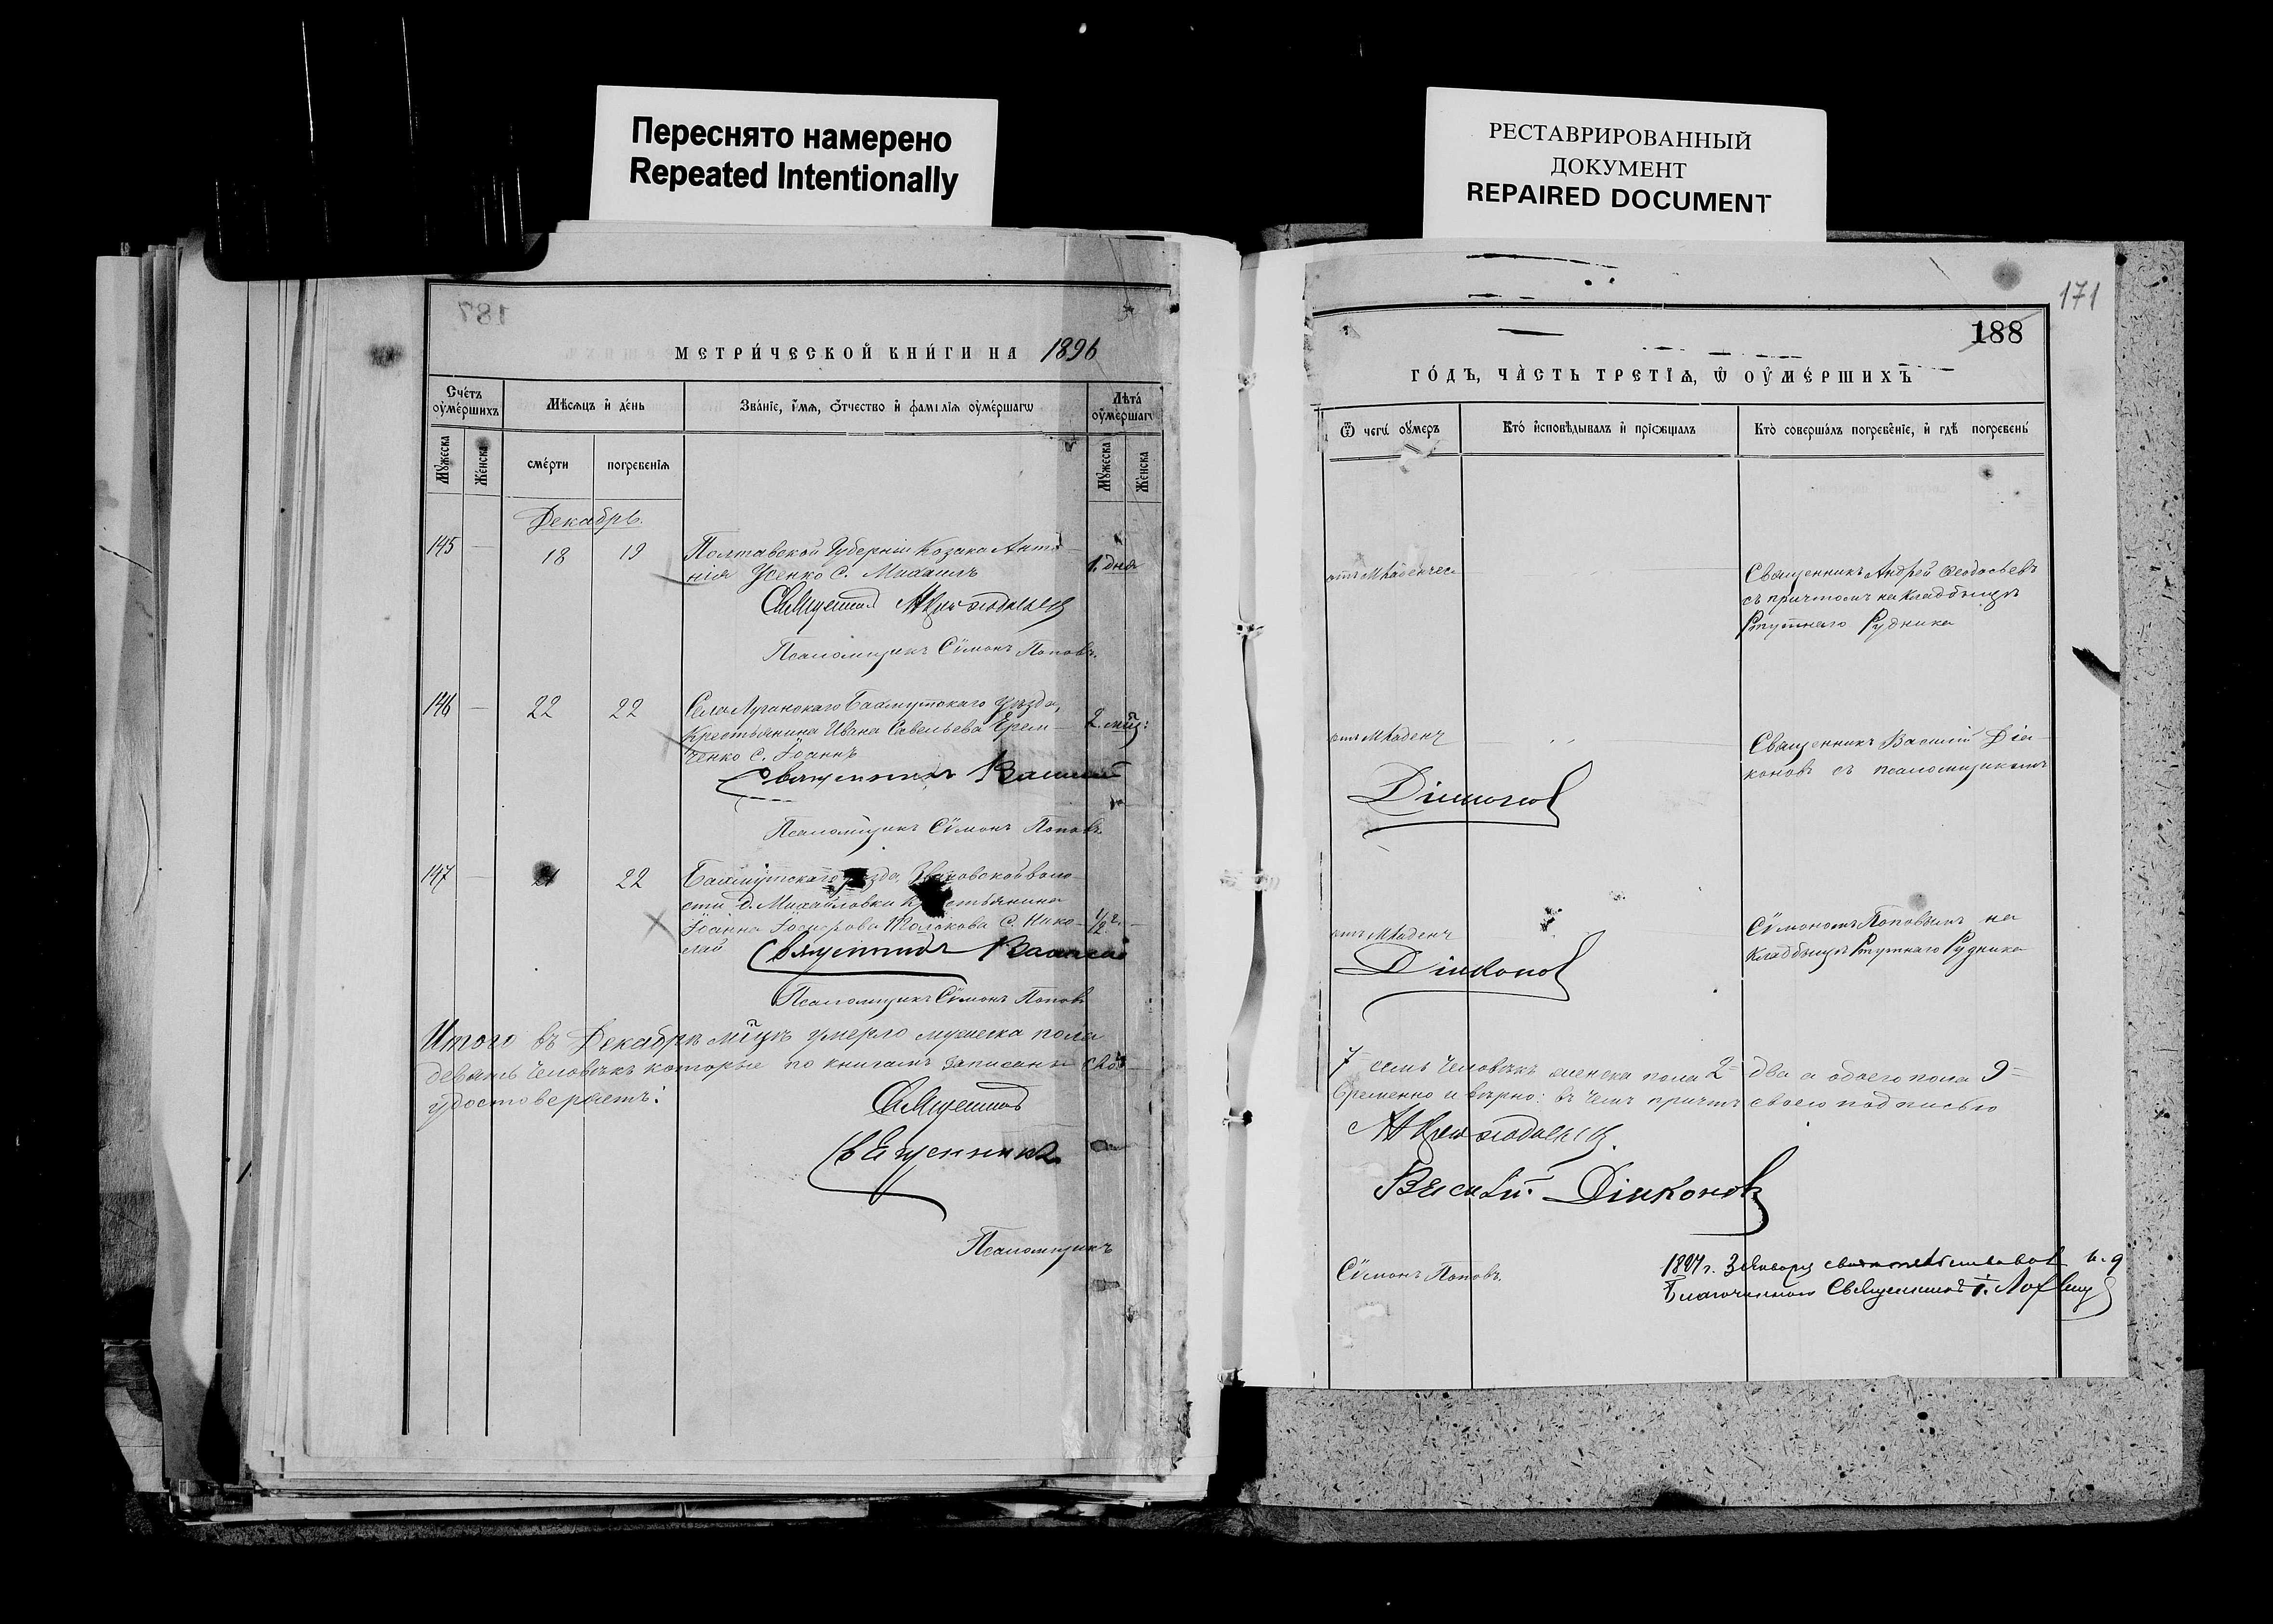 Переснято намерено
Repeated Intentionally
РЕСТАВРИРОВАННЫЙ
ДОКУМЕНТ
REPAIRED DOCUMENT
187
МЕТРИ́ЧЕСКОЙ КНИ́ГИ НА 1896
Сче́тъ оу҆ме́ршихъ
Мѣ́сяцъ и҆ де́нь
Зва́нїе, и҆́мѧ, ѻ҆́тчество и҆ фамі́лїѧ оу҆ме́ршагѡ
Лѣта̀ оу҆ме́ршагѡ
Мꙋ́жеска
Же́нска
сме́рти
погребе́нїѧ
Мꙋ́жеска
Же́нска
Декабрь.
145 — 18 19 Полтавской Губерніи Козака Анто-
нія Усенко с. Михаилъ 1. дня
Священникъ
Псаломщикъ Сѵмонъ Поповъ.
146 — 22 22 Села Луганскаго Бахмутскаго Уѣзда,
Крестьянина Ивана Савельева Ерем-
ченко с. Іоаннъ 2. мц:
Священникъ Василій
Псаломщикъ Сѵмонъ Поповъ.
147 — 21 22 Бахмутскаго уѣзда, воло-
сти д. Михайловки крестьянина
Іоанна Толокова с. Нико- 1/2 г.
лай
Священникъ Василій
Псаломщикъ Сѵмонъ Поповъ
Итого въ Декабрѣ мцѣ умерло мужеска пола
девять человѣкъ которые по книгамъ записаны сво-
удостоверяетъ:
Священникъ
Священникъ
Псаломщикъ
171
188
ГО́ДЪ, ЧА́СТЬ ТРЕ́ТЇѦ, Ѽ ОУ҆МЕ́РШИХЪ
Ѿ чегѡ̀ оу҆́меръ
Кто̀ и҆сповѣ́дывалъ и҆ прїѻбща́лъ
Кто̀ соверша́лъ погребе́нїе, и҆ гдѣ̀ погребе́ны
отъ младенчес
Священникъ Андрей Ѳеодосьевъ
съ причтомъ на кладбищѣ
Ртутнаго Рудника
отъ младенч
Священникъ Василій Діа-
коновъ съ псаломщикомъ
Діаконов
отъ младенч
Сѵмономъ Поповымъ на
кладбищѣ Ртутнаго Рудника
Діаконов
7 семь человѣкъ женска пола 2 два а обоего пола 9
временно и вѣрно: въ чемъ причтъ своею подписью
Василій Діаконов
Сѵмонъ Поповъ.
1897 г. Января свидетельствовал и. д
Благочиннаго Священникъ І.